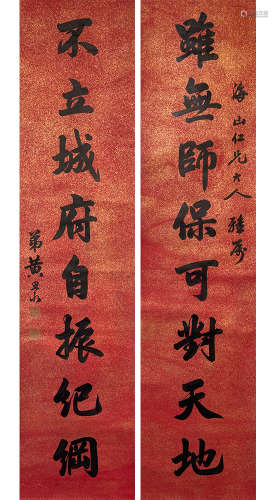 雖無師保可對天地
海山仁兄大人雅屬
不立城府自振紀綱
弟黃